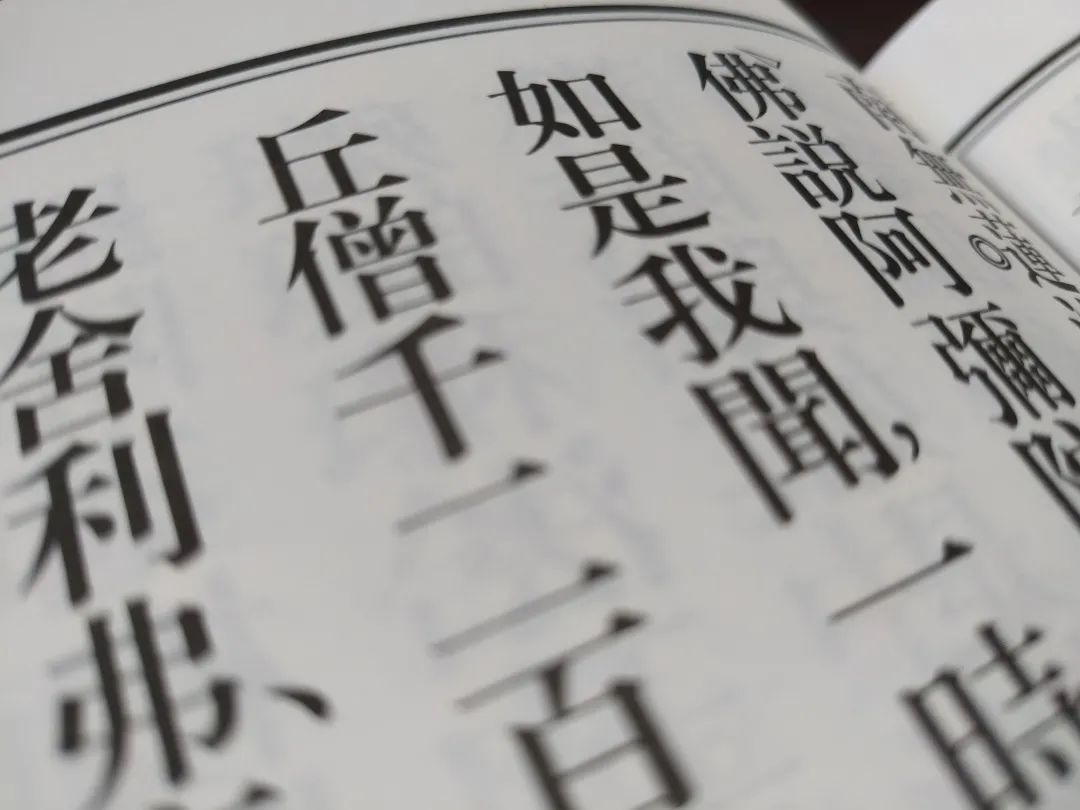 南無
佛説阿彌
如是我聞，一時
丘僧千二百
老舍利弗、